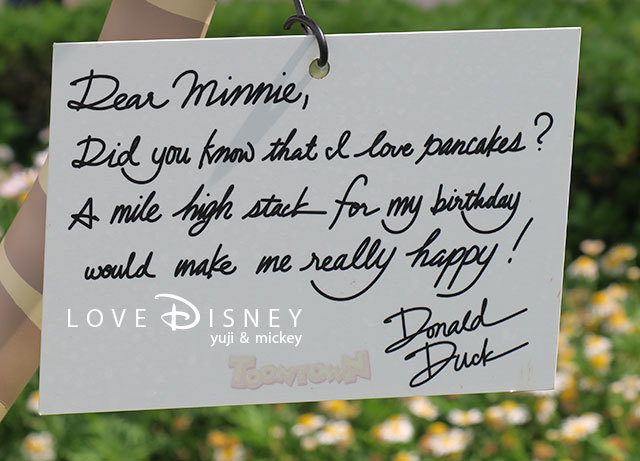 Dear Minnie,
Did you know that I love pancakes?
A mile high stack for my birthday
would make me really happy!
LOVE DISNEY
yuji & mickey
Donald
Duck
TOONTOWN